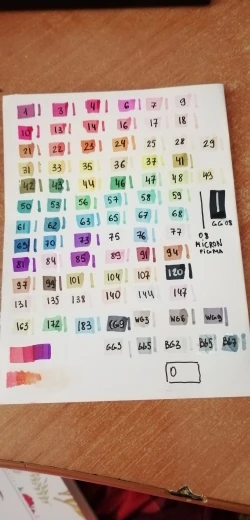 1 3 4 6 7 9
10 13 14 16 17 18
21 22 23 24 25 28 29
31 33 35 36 37 41
42 43 44 46 47 48 49
50 53 56 57 58 59
61 62 63 65 67 68
69 70 73 75 76 77
81 84 85 89 91 94
97 99 101 104 107 120
131 135 138 140 144 147
163 172 183 CG9 WG3 WG6 WG9
GG3 GG5 BG3 BG5 BG7
0
GG 08
08
MICRON
PIGMA